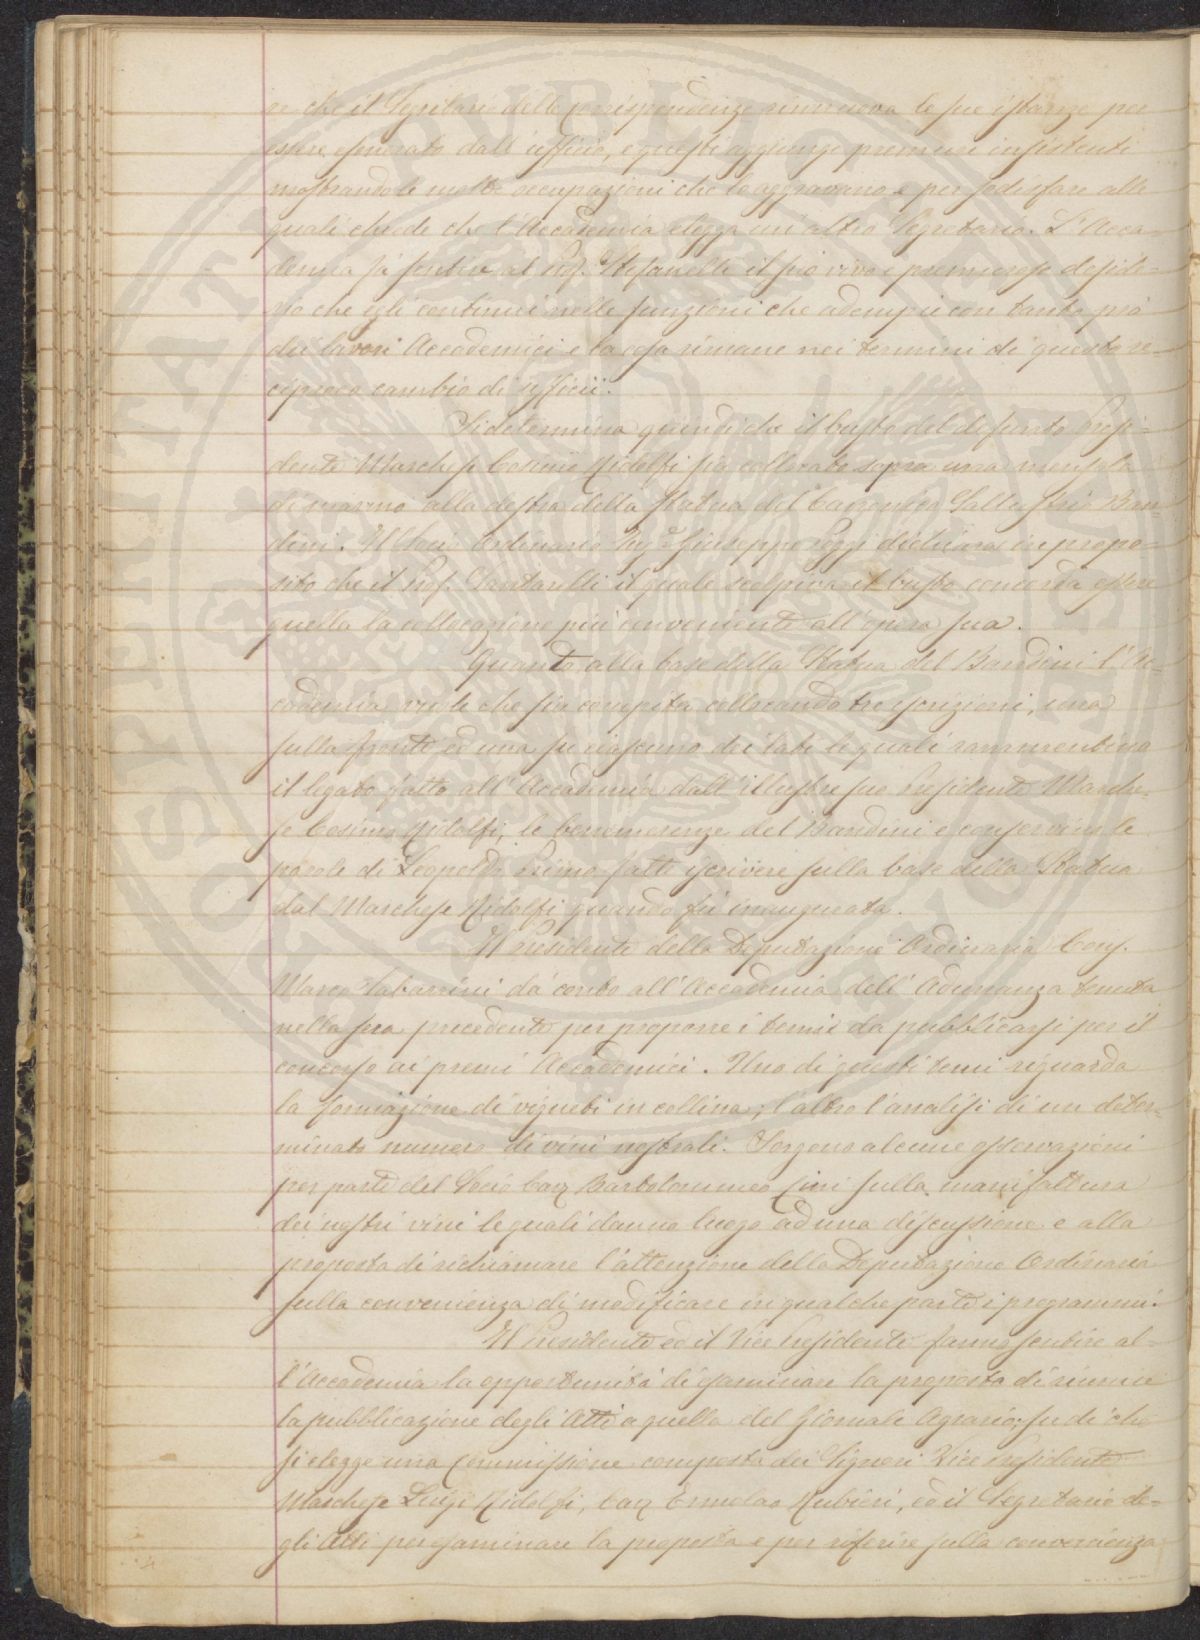 re che il Segretario delle corrispondenze rinnuova le sue istanze per
essere esonerato dall'ufficio, e questi aggiunge premure insistenti
mostrando le molte occupazioni che lo aggravano e per sodisfare alle
quali chiede che l'Accademia elegga un altro Segretario. L'Acca-
demia fà sentire al Prof. Stefanelli il più vivo e premuroso deside-
rio che egli continui nelle funzioni che adempie con tanto prò
dei lavori Accademici e la cosa rimane nei termini di questo re-
ciproco cambio di ufficii.
Si determina quindi che il busto del defunto Presi-
dente Marchese Cosimo Ridolfi sia collocato sopra una mensola
di marmo alla destra della Statua del Canonico Sallustio Ban-
dini. Il Socio Ordinario Ing.e Giuseppe Poggi dichiara in propo-
sito che il Prof. Santarelli il quale scolpiva il busto concorda essere
quella la collocazione più conveniente all'opera sua.
Quanto alla base della Statua del Bandini l'Ac-
cademia vuole che sia compita collocando tre iscrizioni, una
sulla fronte ed una su ciascuno dei lati le quali rammentino
il legato fatto all'Accademia dall'illustre suo Presidente Marche-
se Cosimo Ridolfi, le benemerenze del Bandini e conservino le
parole di Leopoldo Primo fatte iscrivere sulla base della Statua
dal Marchese Ridolfi quando fù inaugurata.
Il Presidente della Deputazione Ordinaria Cons.
Marco Tabarrini dà conto all'Accademia dell'Adunanza tenuta
nella sera precedente per proporre i temi da pubblicarsi per il
concorso ai premi Accademici. Uno di questi temi riguarda
la formazione di vigneti in collina; l'altro l'analisi di un deter-
minato numero di vini nostrali. Sorgono alcune osservazioni
per parte del Socio Cav. Bartolommeo Cini sulla manifattura
dei nostri vini le quali danno luogo ad una discussione e alla
proposta di richiamare l'attenzione della Deputazione Ordinaria
sulla convenienza di modificare in qualche parte i programmi.
Il Presidente ed il Vice Presidente fanno sentire al-
l'Accademia la opportunità di esaminare la proposta di riunire
la pubblicazione degli Atti a quella del Giornale Agrario; su di che
si elegge una Commissione composta dei Signori Vice Presidente
Marchese Luigi Ridolfi, Cav. Ermolao Rubieri, ed il Segretario de-
gli Atti per esaminare la proposta e per riferire sulla convenienza